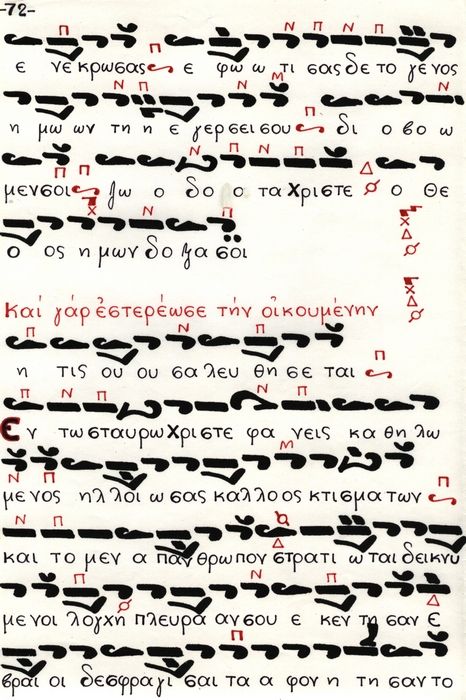 -72-
ε νεκρωσας ε φω ω τι σας δε το γένος
η μω ων τη η ε γερσει σου δι ο βο ω
μεν σοι ζω ο δο ο τα Χριστε ο Θε
ο ος η μων δο ξα σοι
Καί γάρ ἐστερέωσε τήν οἰκουμένην
η τις ου ου σα λευ θη σε ται
Εν τω σταυρω Χριστε φα νεις κα θη λω
με νος ηλλοι ω σας καλλο ος κτισμα των
και το μεν α παν θρωπον στρατι ω ται δεικνυ
μενοι λογχη πλευρα αν σου ε κεν τη σαν Ε
βραι οι δε σφραγι σαι τα α φον η τη σαν το